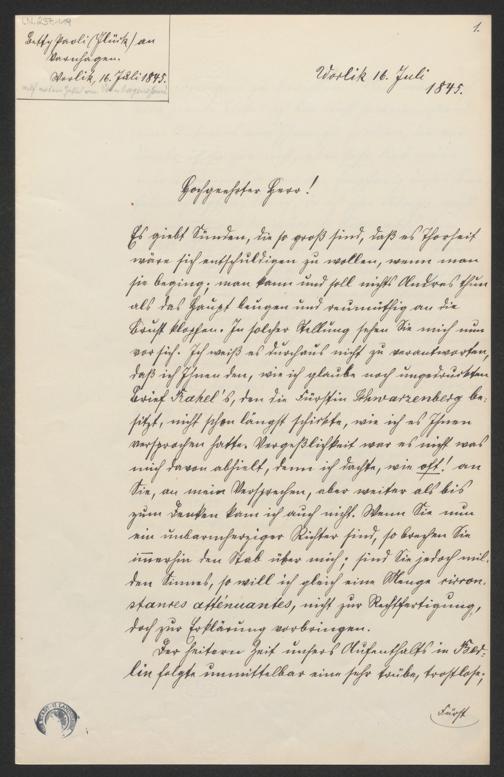 I.N. 237.119
Betty Paoli (Glück) an
Varnhagen.
Worlik, 16. Juli 1845.
1.
Worlik 16. Juli
1845.
Hochgeehrter Herr!
Es giebt Sünden, die so groß sind, daß es Thorheit
wäre sich entschuldigen zu wollen, wenn man
sie beging; man kann und soll nichts Andres thun
als das Haupt beugen und reumüthig an die
Brust klopfen. In solcher Stellung sehen Sie mich nun
vor sich. Ich weiß es durchaus nicht zu verantworten,
daß ich Ihnen den, wie ich glaube noch ungedruckten
Brief Rahel's, den die Fürstin Schwarzenberg be-
sitzt, nicht schon längst schickte, wie ich es Ihnen
versprochen hatte. Vergeßlichkeit war es nicht was
mich davon abhielt, denn ich dachte, wie oft! an
Sie, an mein Versprechen, aber weiter als bis
zum Denken kam ich auch nicht. Wenn Sie nun
ein unbarmherziger Richter sind, so brechen Sie
immerhin den Stab über mich; sind Sie jedoch mil-
den Sinnes, so will ich gleich eine Menge circon-
stances atténuantes, nicht zur Rechtfertigung,
doch zur Erklärung vorbringen.
Der heitern Zeit unsers Aufenthalts in Ber-
lin folgte unmittelbar eine sehr trübe, trostlose;
Fürst